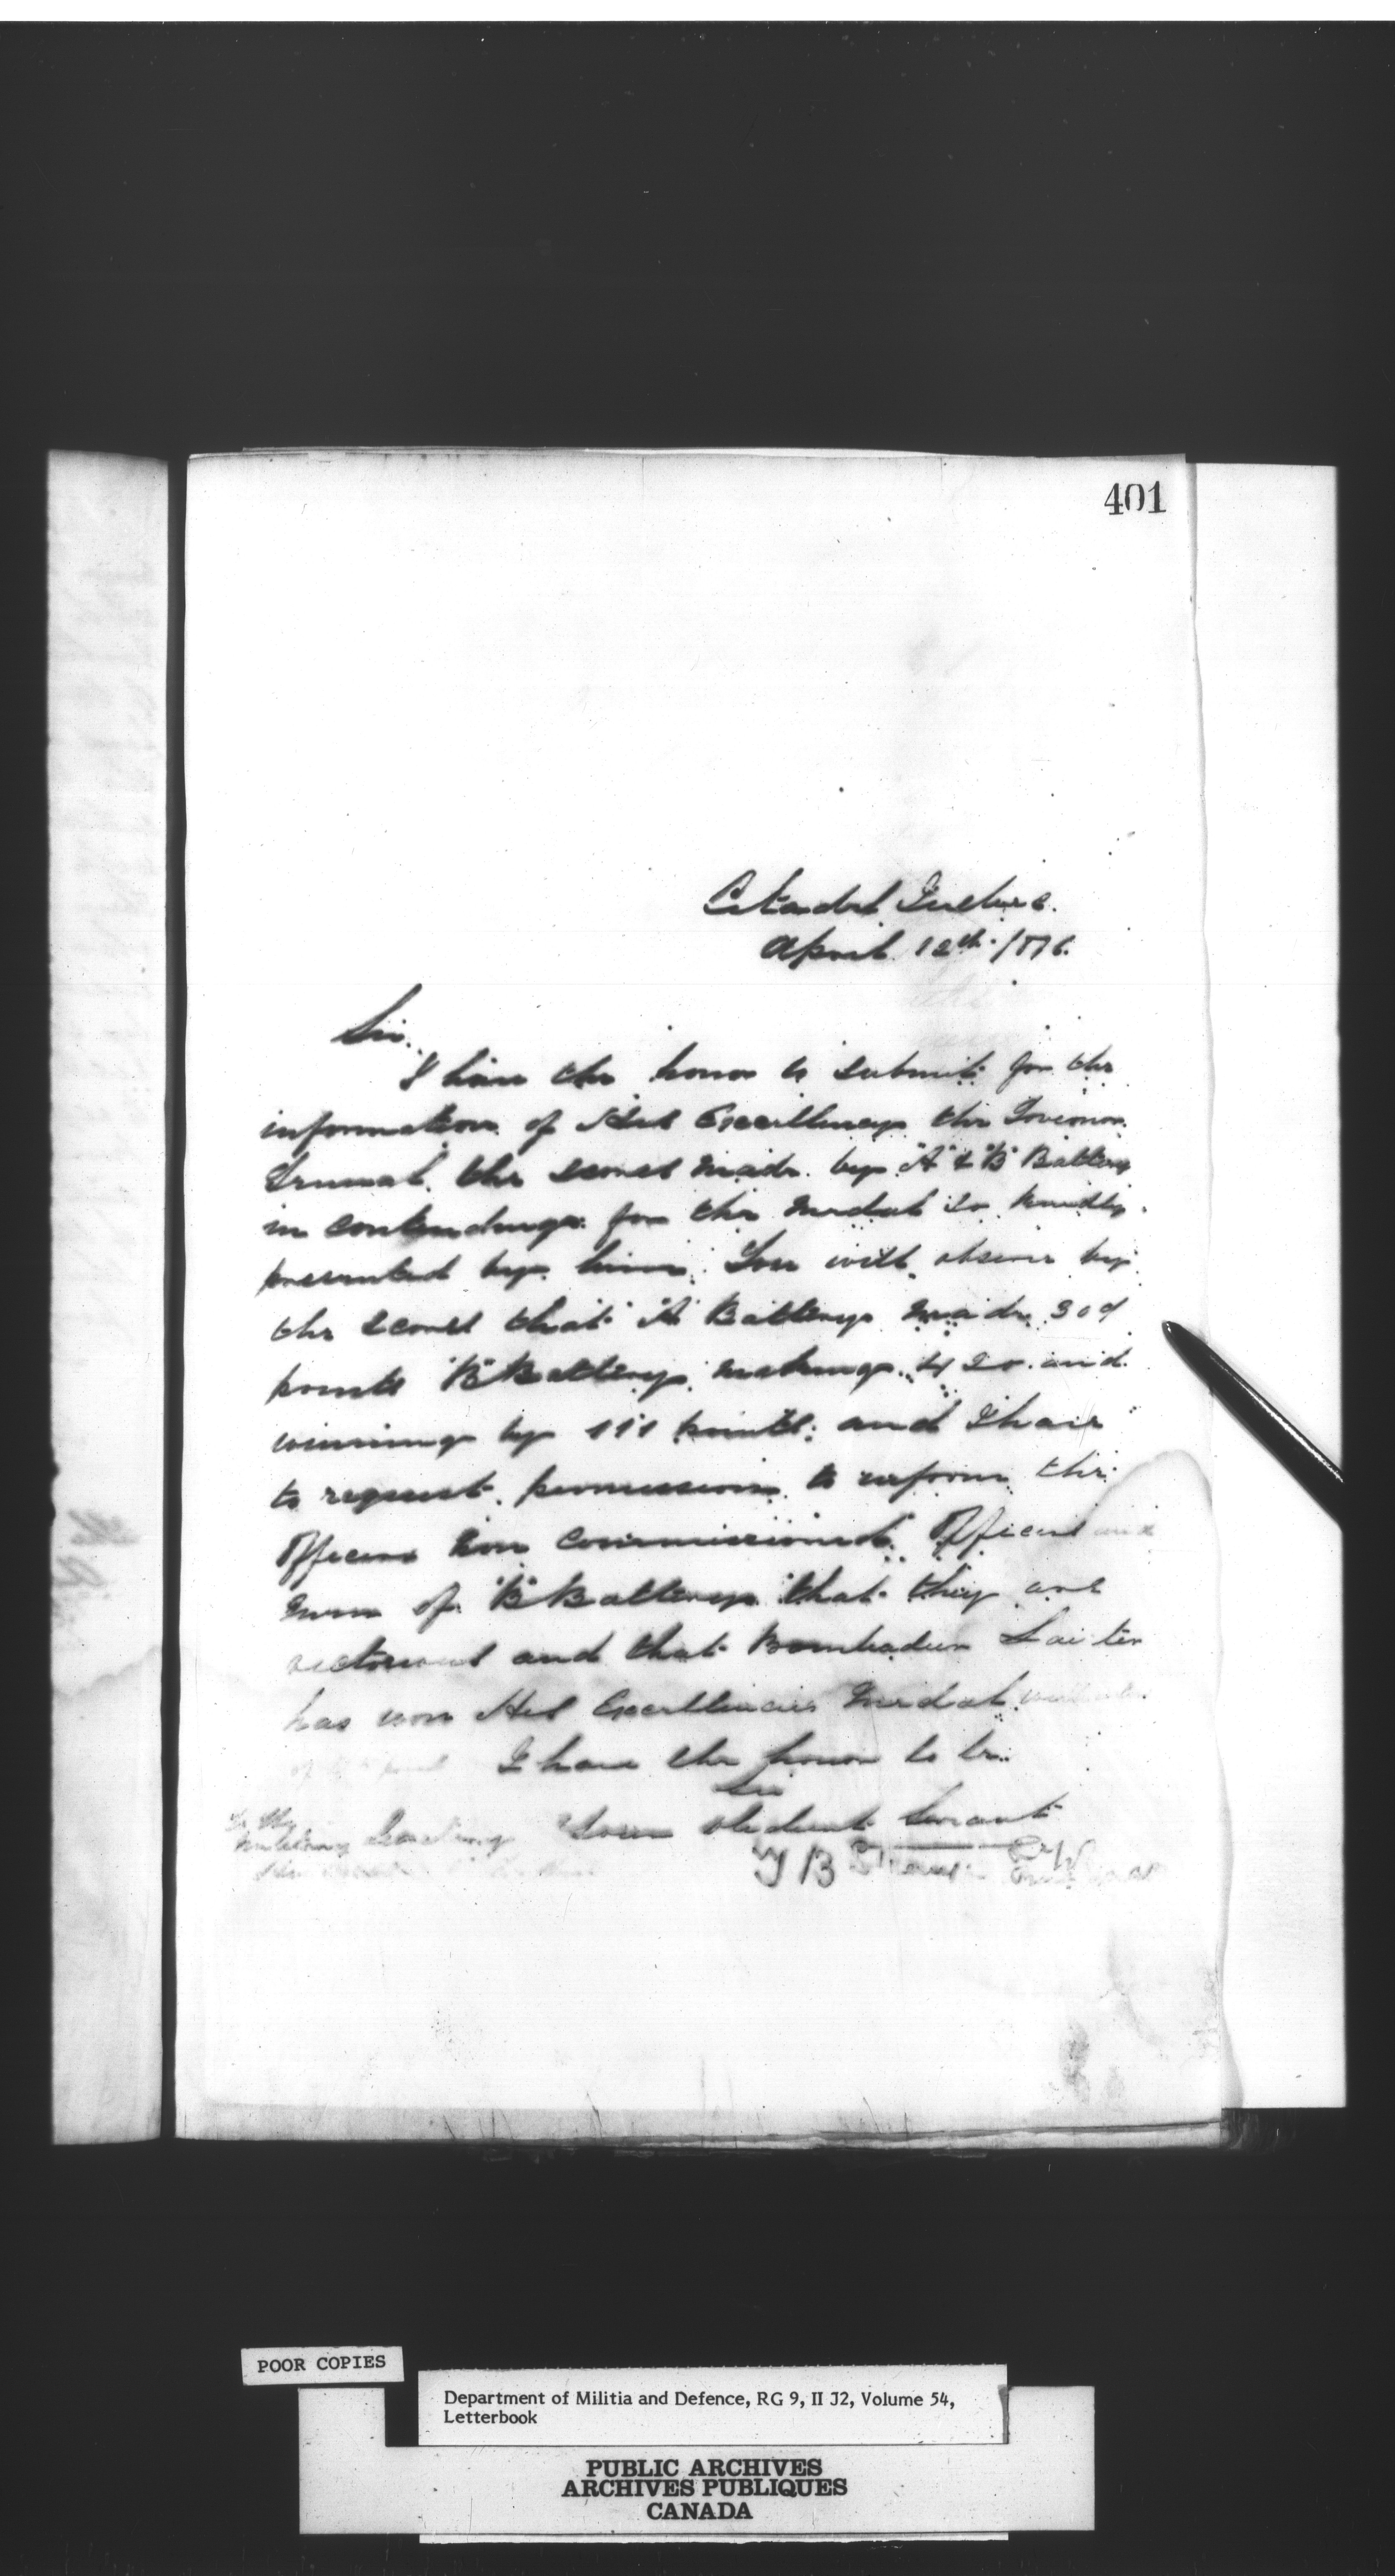 401
Citadel Quebec.
April 12th /76.
Sir.
I have the honor to submit for the
information of His Excellency the Governor
General the scores made by "A" & "B" Battery
in contending for the medal so kindly
presented by him. You will observe by
the scores that "A" Battery made 309
points "B" Battery making 420 and
winning by 111 points; and I have
to request permission to inform the
Officers Non Commissioned Officers and
men of "B" Battery that they are
victorious and that Bombadier
has won His Excellencies Medal
I have the honor to be
Sir
Your obedient Servant
To the
Military Secretary
T B Strange
POOR COPIES
Department of Militia and Defence, RG 9, II J2, Volume 54,
Letterbook
PUBLIC ARCHIVES
ARCHIVES PUBLIQUES
CANADA